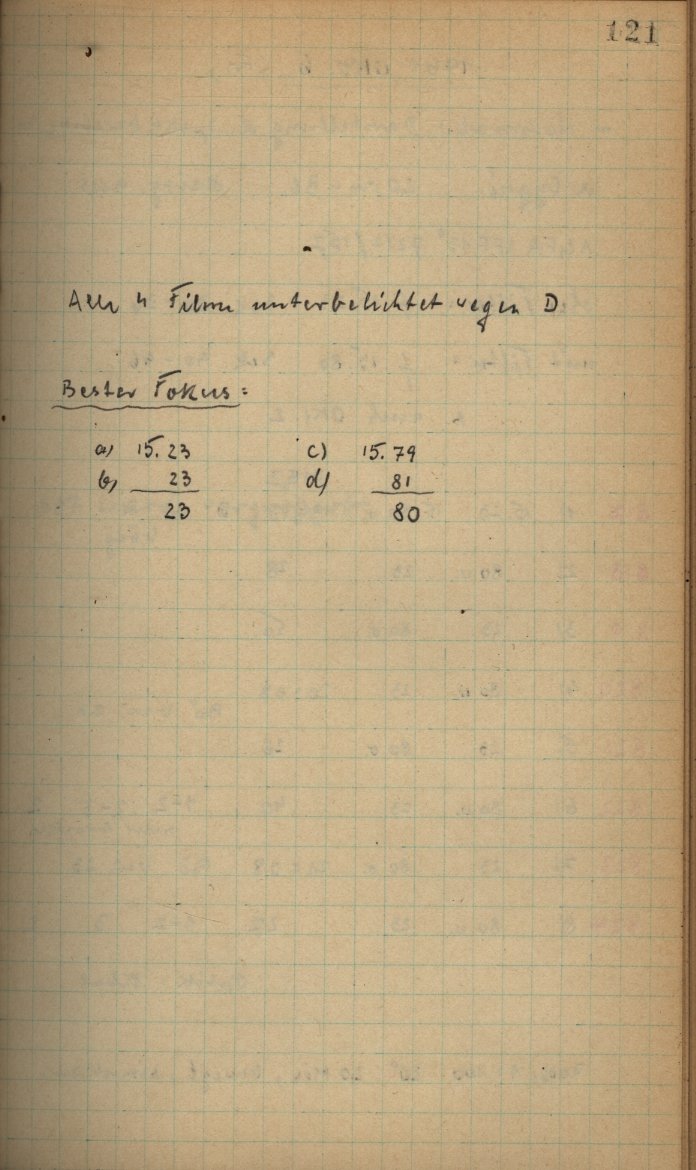 121
Alle 4 Filme unterbelichtet wegen D
Bester Fokus:
a) 15.23 c) 15.79
b) 23 d) 81
23 80